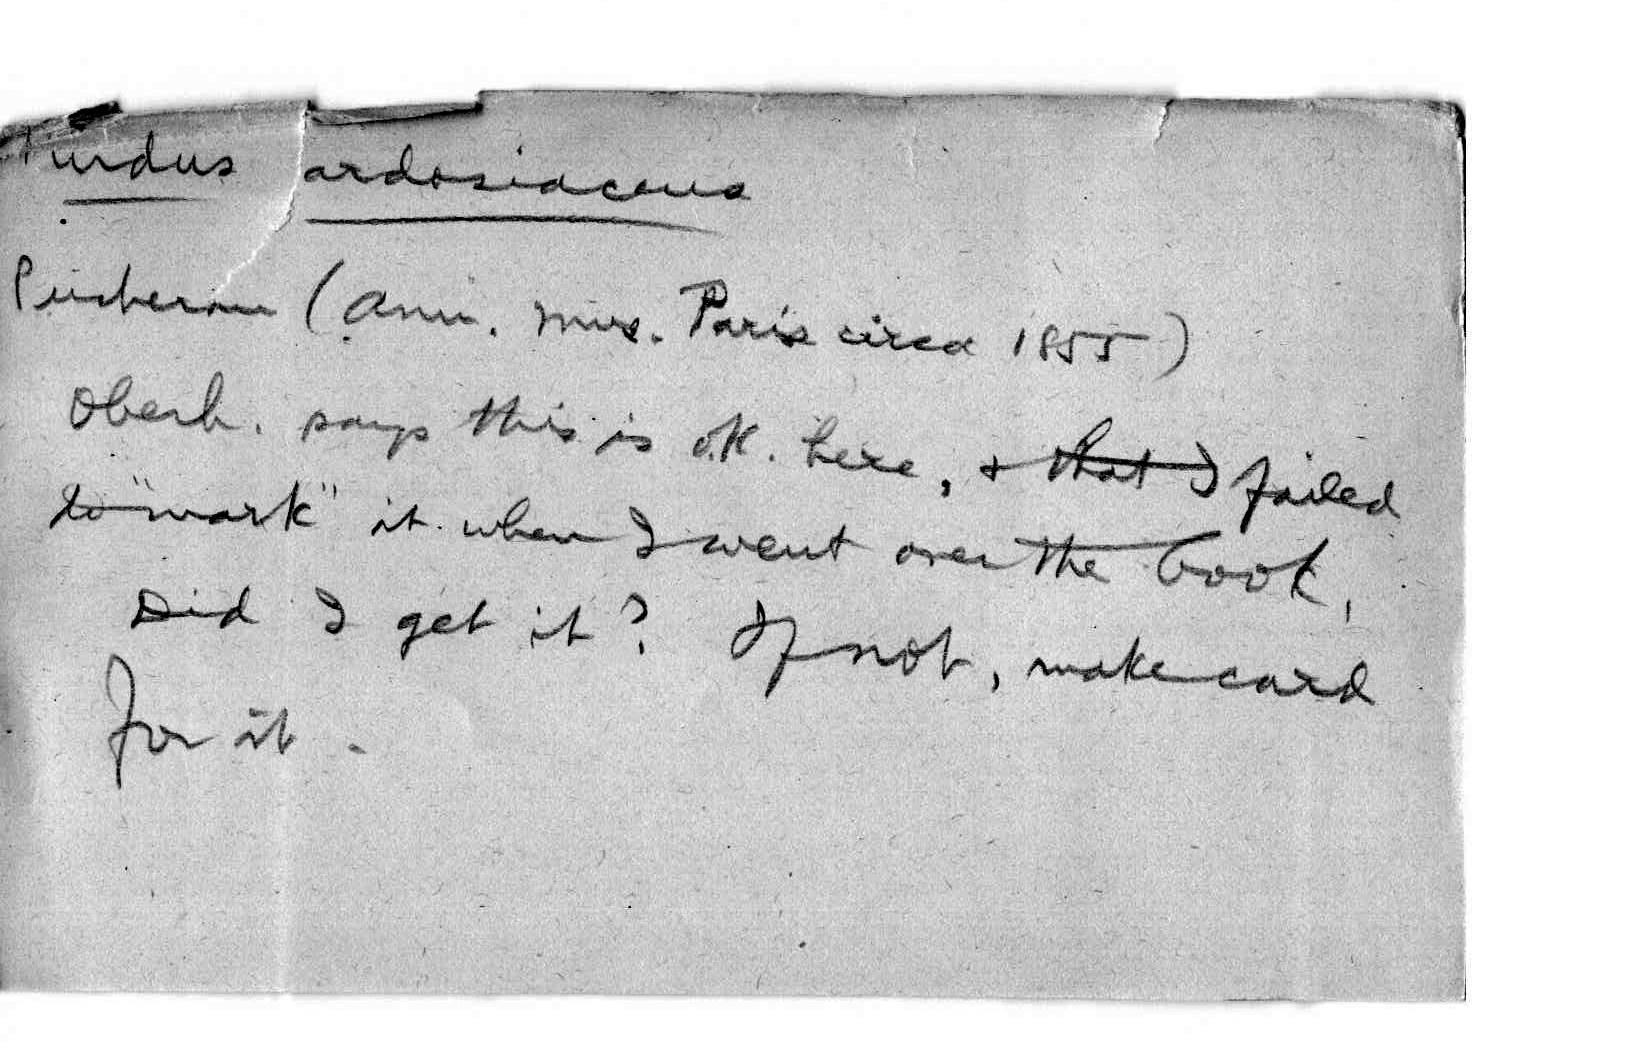 Turdus ardosiacous
Pucheran (Ann. Mus. Paris circa 1855)
Oberh. says this is o.K. here, + that I failed
to "mark" it when I went over the book,
Did I get it? If not, make card
for it.